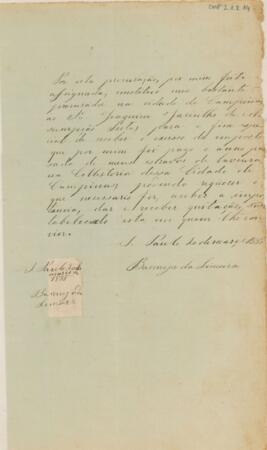 Por esta procuração, por mim feita e
assignada, constituo meu bastante
procurador na cidade de Campinas
ao Sr. Joaquim
para o fim espe-
cial de receber o excesso de imposto
que por mim foi pago o anno pas-
sado de meus escravos de lavoura
na Colletoria dessa Cidade de
Campinas podendo requerer o
que necessario for, receber a impor-
tancia, dar e receber quitação, subs-
tabelecendo esta em quem lhe con-
vier.
S. Paulo 20 de março 1885
Baroneza de Limeira
S. Paulo 20 de
março
1885
Baroneza de
Limeira